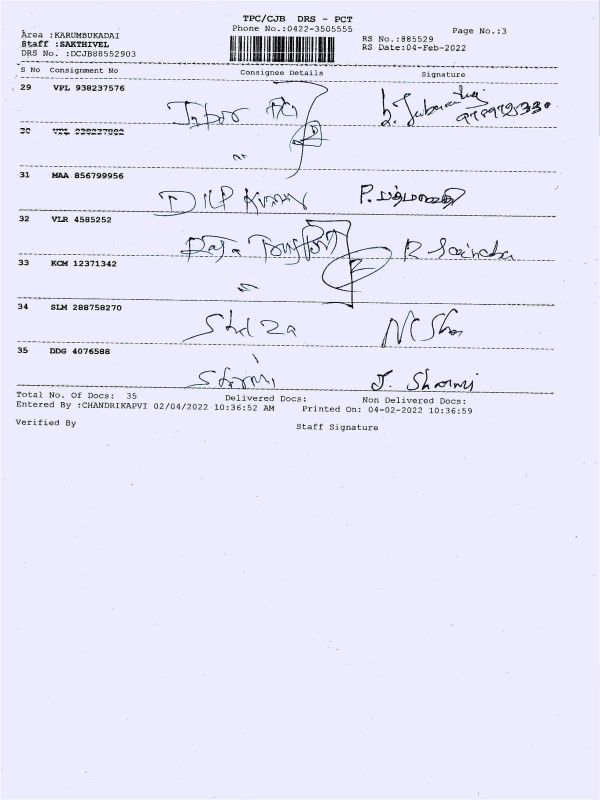 TPC/CJB DRS - PCT
Phone No.:0422-3505555
Page No.:3
Area :KARUMBUKADAI
Staff :SAKTHIVEL
DRS No. :DCJB88552903
RS No.:885529
RS Date:04-Feb-2022
S No Consignment No Consignee Details Signature
29 VPL 938237576
30
31 MAA 856799956
DILP Kumar P.
32 VLR 4585252
Raja R
33 KCM 12371342
34 SLM 288758270
35 DDG 4076588
J. Sharmi
Total No. Of Docs: 35 Delivered Docs: Non Delivered Docs:
Entered By :CHANDRIKAPVI 02/04/2022 10:36:52 AM Printed On: 04-02-2022 10:36:59
Verified By Staff Signature